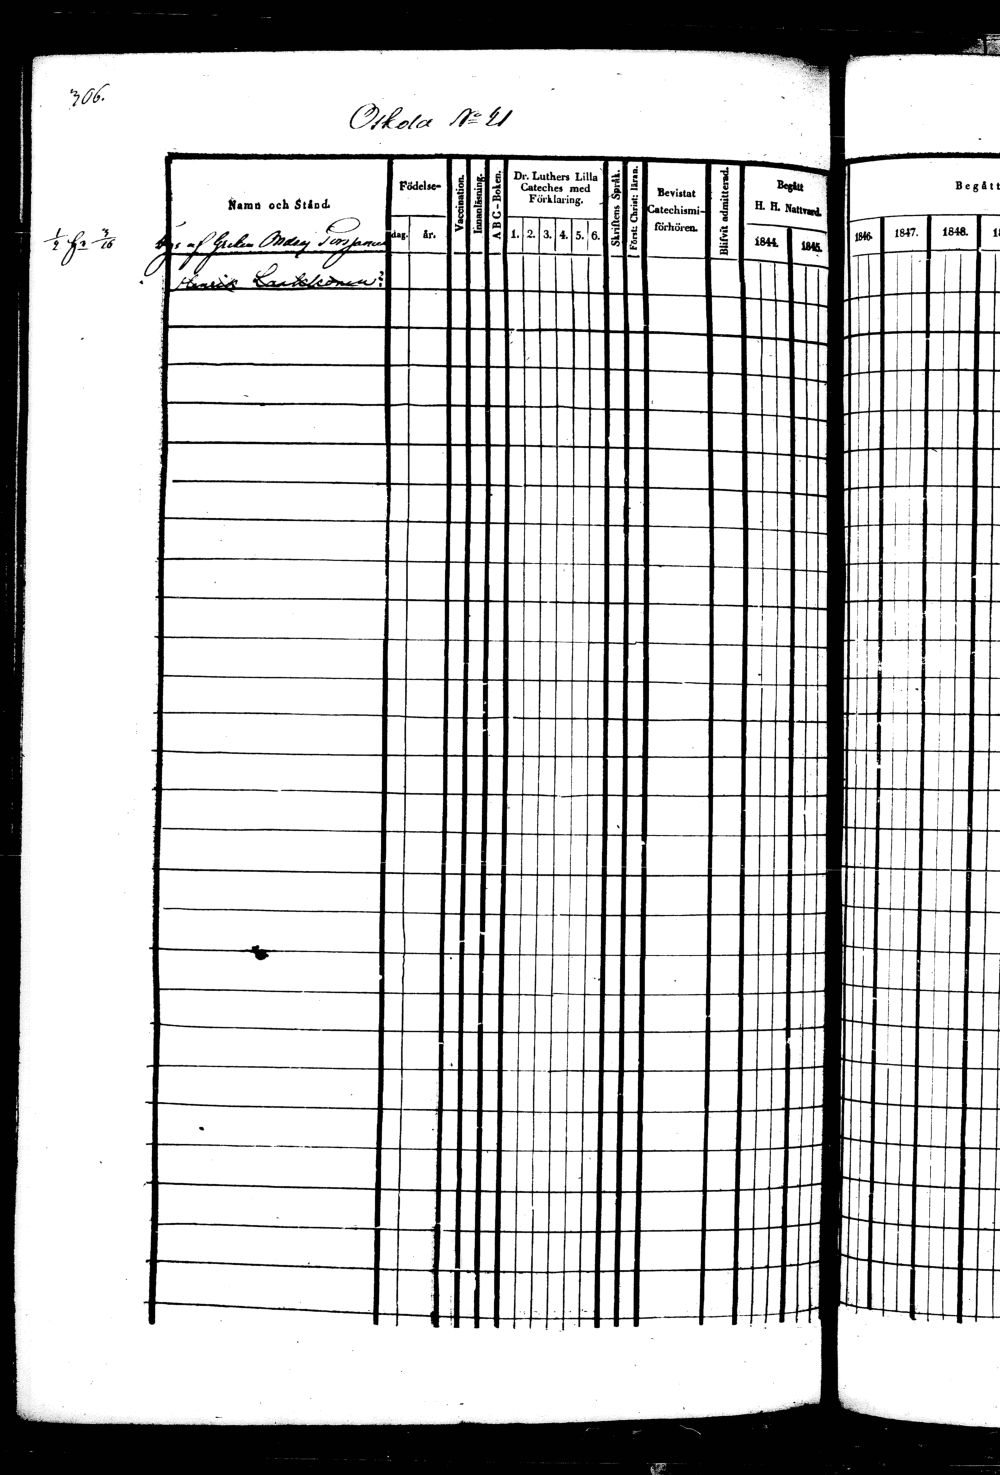 306.
Oskola No 21
Namn och Stånd.
Födelse-
dag. år.
Vaccination.
Innanläsning.
A B C-Boken.
Dr. Luthers Lilla
Cateches med
Förklaring.
1. 2. 3. 4. 5. 6.
Skriftens Språk.
Först: Christ: läran.
Bevistat
Catechismi-
förhören.
Blifvit admitterad.
Begått
H. H. Nattvard.
1844. 1845.
Begått
1846. 1847. 1848.
1/2 3/16
af Greken
Henrik